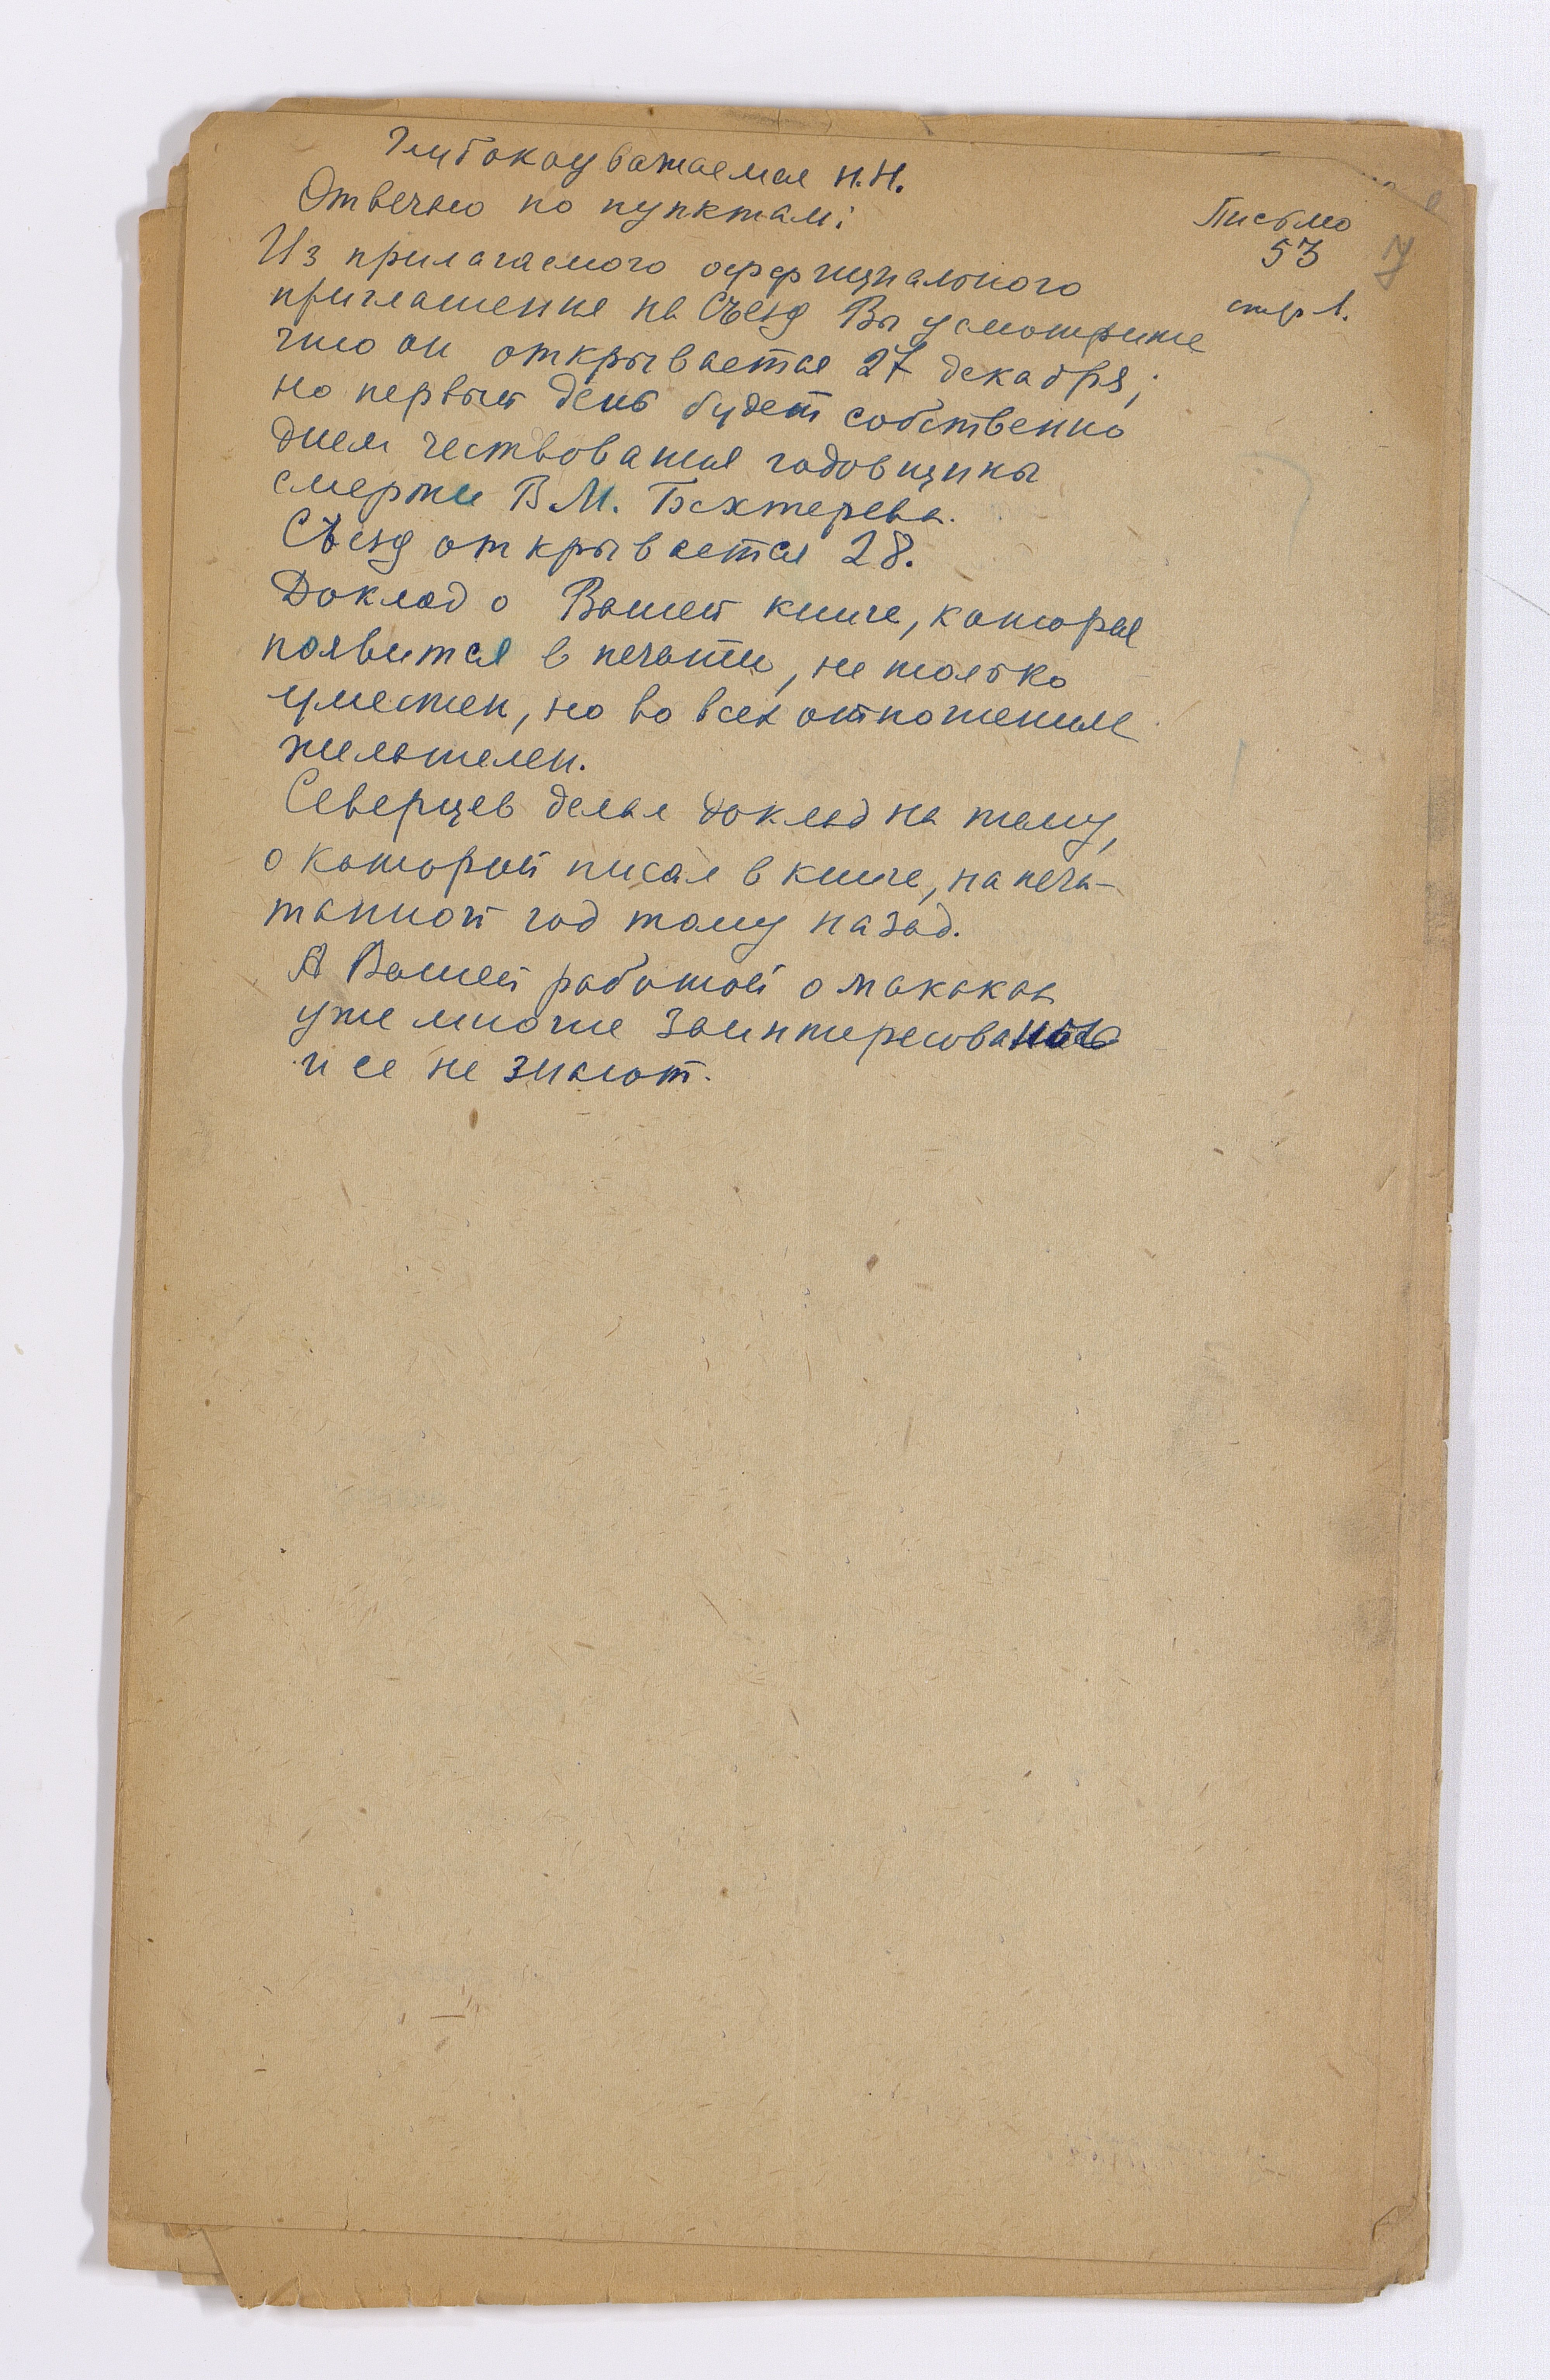 Глубокоуважаемая Н.Н.
Отвечаю по пунктам:
Письмо
53
стр 1.
Из прилагаемого оффициального
приглашения на Съезд Вы усмотрите
что он открывается 27 декабря;
но первый день будет собственно
днем чествования годовщины
смерти В.М. Бехтерева.
Съезд открывается 28.
Доклад о Вашей книге, которая
появится в печати, не только
уместен, но во всех отношениях
желателен.
Северцев делал доклад на тему,
о которой писал в книге, напеча-
танной год тому назад.
А Вашей работой о макаках
уже многие заинтересованы
и ее не знают.